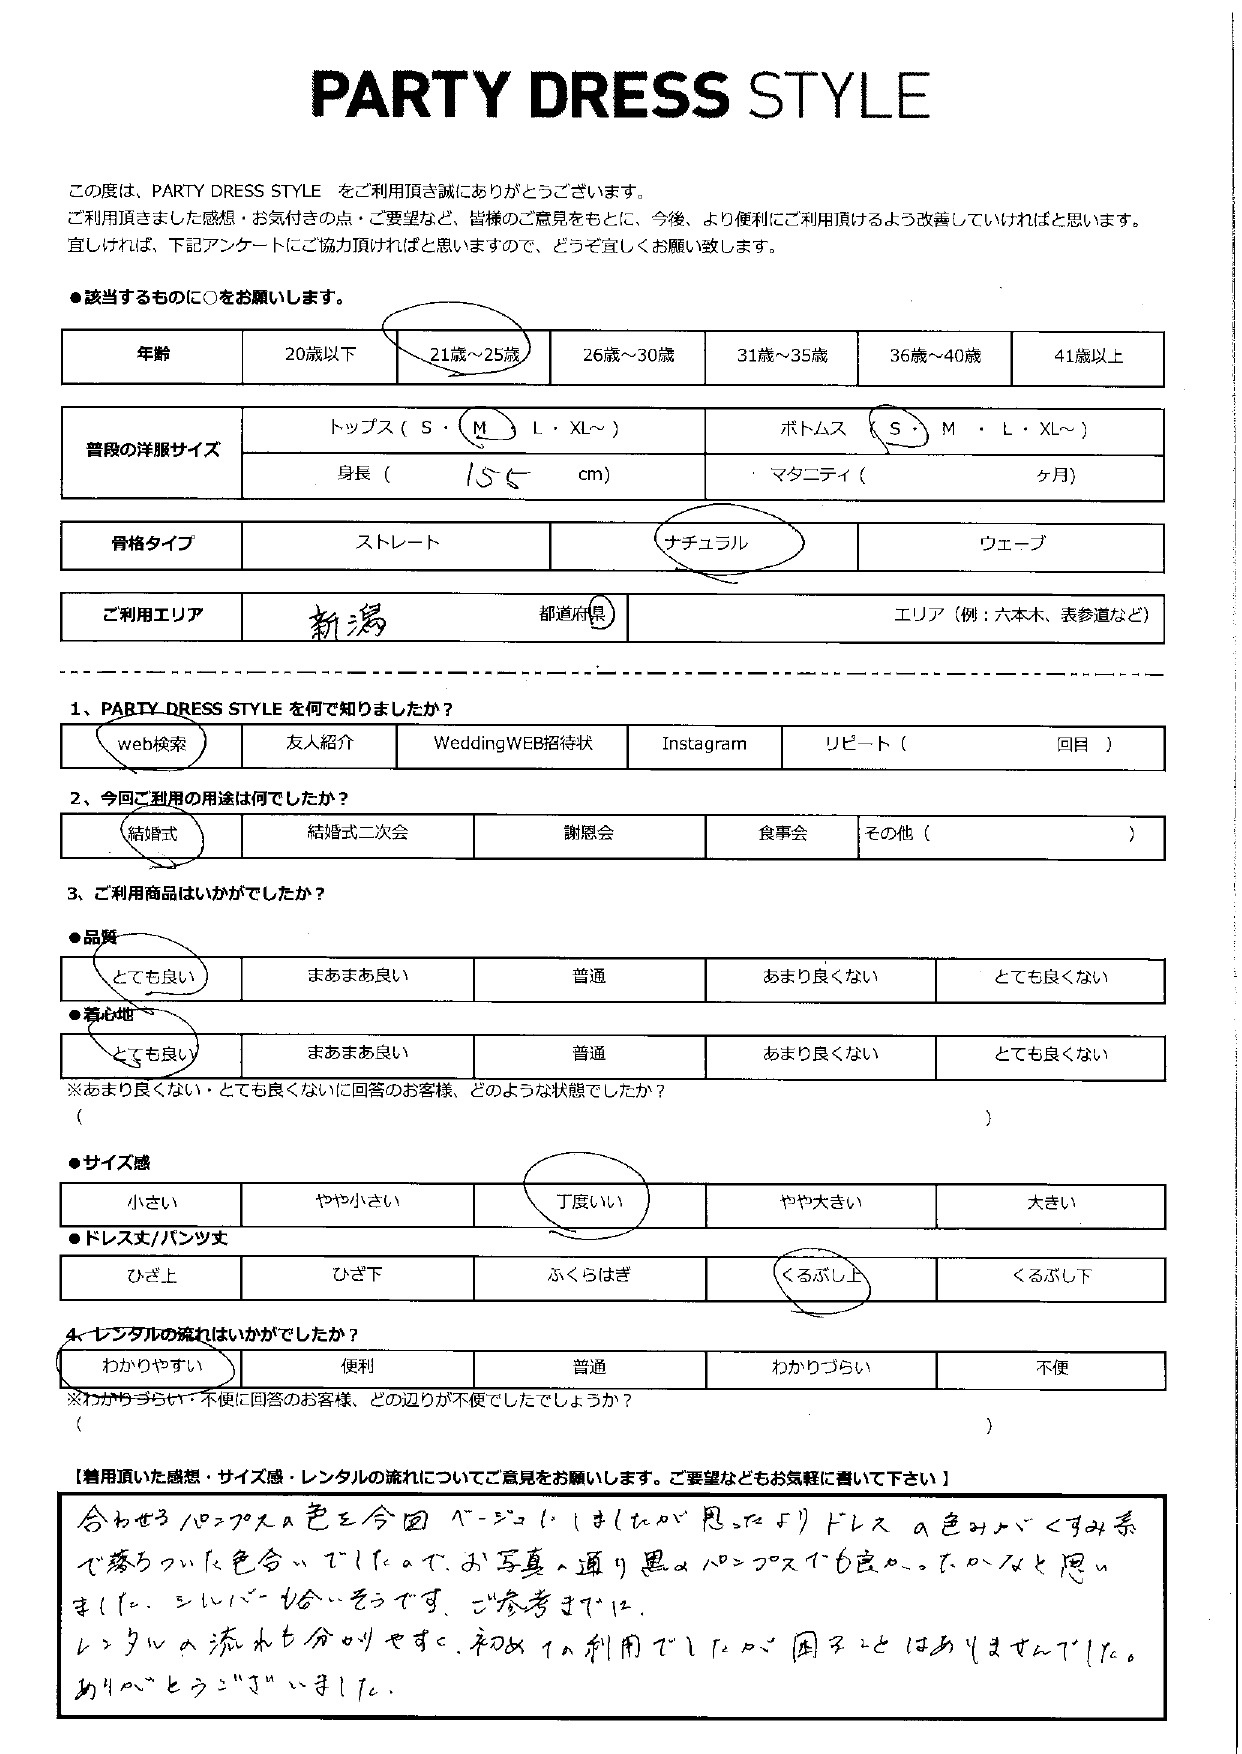 PARTY DRESS STYLE
この度は、PARTY DRESS STYLE　をご利用頂き誠にありがとうございます。
ご利用頂きました感想・お気付きの点・ご要望など、皆様のご意見をもとに、今後、より便利にご利用頂けるよう改善していければと思います。
宜しければ、下記アンケートにご協力頂ければと思いますので、どうぞ宜しくお願い致します。
●該当するものに○をお願いします。
年齢 20歳以下 21歳～25歳 26歳～30歳 31歳～35歳 36歳～40歳 41歳以上
普段の洋服サイズ
トップス ( S ・ M ・ L ・ XL～ ) ボトムス ( S ・ M ・ L ・ XL～ )
身長 ( 155 cm) マタニティ ( ヶ月)
骨格タイプ ストレート ナチュラル ウェーブ
ご利用エリア 新潟 都道府県 エリア（例：六本木、表参道など）
1、PARTY DRESS STYLE を何で知りましたか？
web検索 友人紹介 WeddingWEB招待状 Instagram リピート ( 回目 )
2、今回ご利用の用途は何でしたか？
結婚式 結婚式二次会 謝恩会 食事会 その他 ( )
3、ご利用商品はいかがでしたか？
●品質
とても良い まあまあ良い 普通 あまり良くない とても良くない
●着心地
とても良い まあまあ良い 普通 あまり良くない とても良くない
※あまり良くない・とても良くないに回答のお客様、どのような状態でしたか？
( )
●サイズ感
小さい やや小さい 丁度いい やや大きい 大きい
●ドレス丈/パンツ丈
ひざ上 ひざ下 ふくらはぎ くるぶし上 くるぶし下
4、レンタルの流れはいかがでしたか？
わかりやすい 便利 普通 わかりづらい 不便
※わかりづらい・不便に回答のお客様、どの辺りが不便でしたでしょうか？
( )
【着用頂いた感想・サイズ感・レンタルの流れについてご意見をお願いします。ご要望などもお気軽に書いて下さい 】
合わせるパンプスの色を今回 ベージュにしましたが思ったよりドレスの色みがくすみ系
で落ちついた色合いでしたので、お写真の通り黒のパンプスでも良かったかなと思い
ました。シルバーも合いそうです。ご参考までに。
レンタルの流れも分かりやすく、初めての利用でしたが困ることはありませんでした。
ありがとうございました。